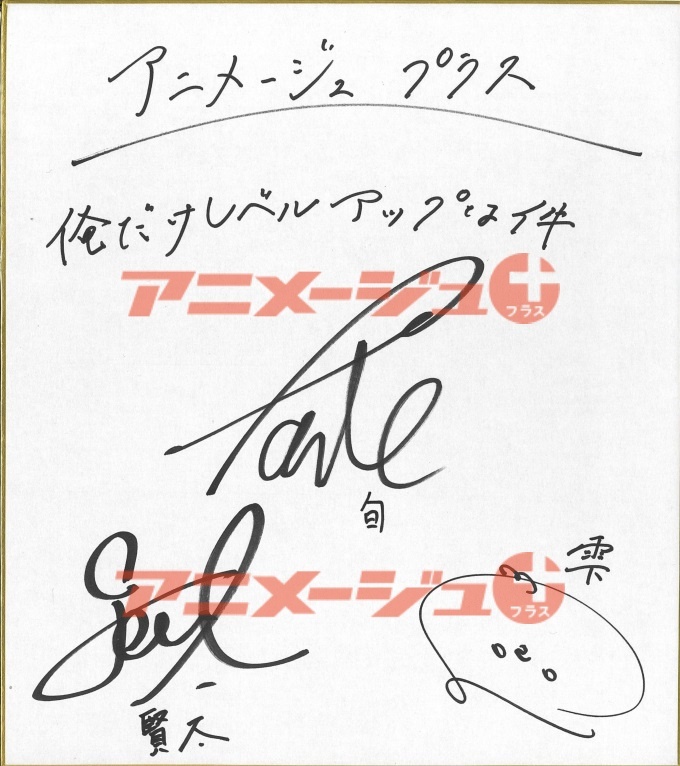 アニメージュ プラス
俺だけレベルアップな件
アニメージュ+
プラス
旬
アニメージュ+
プラス
雫
賢太